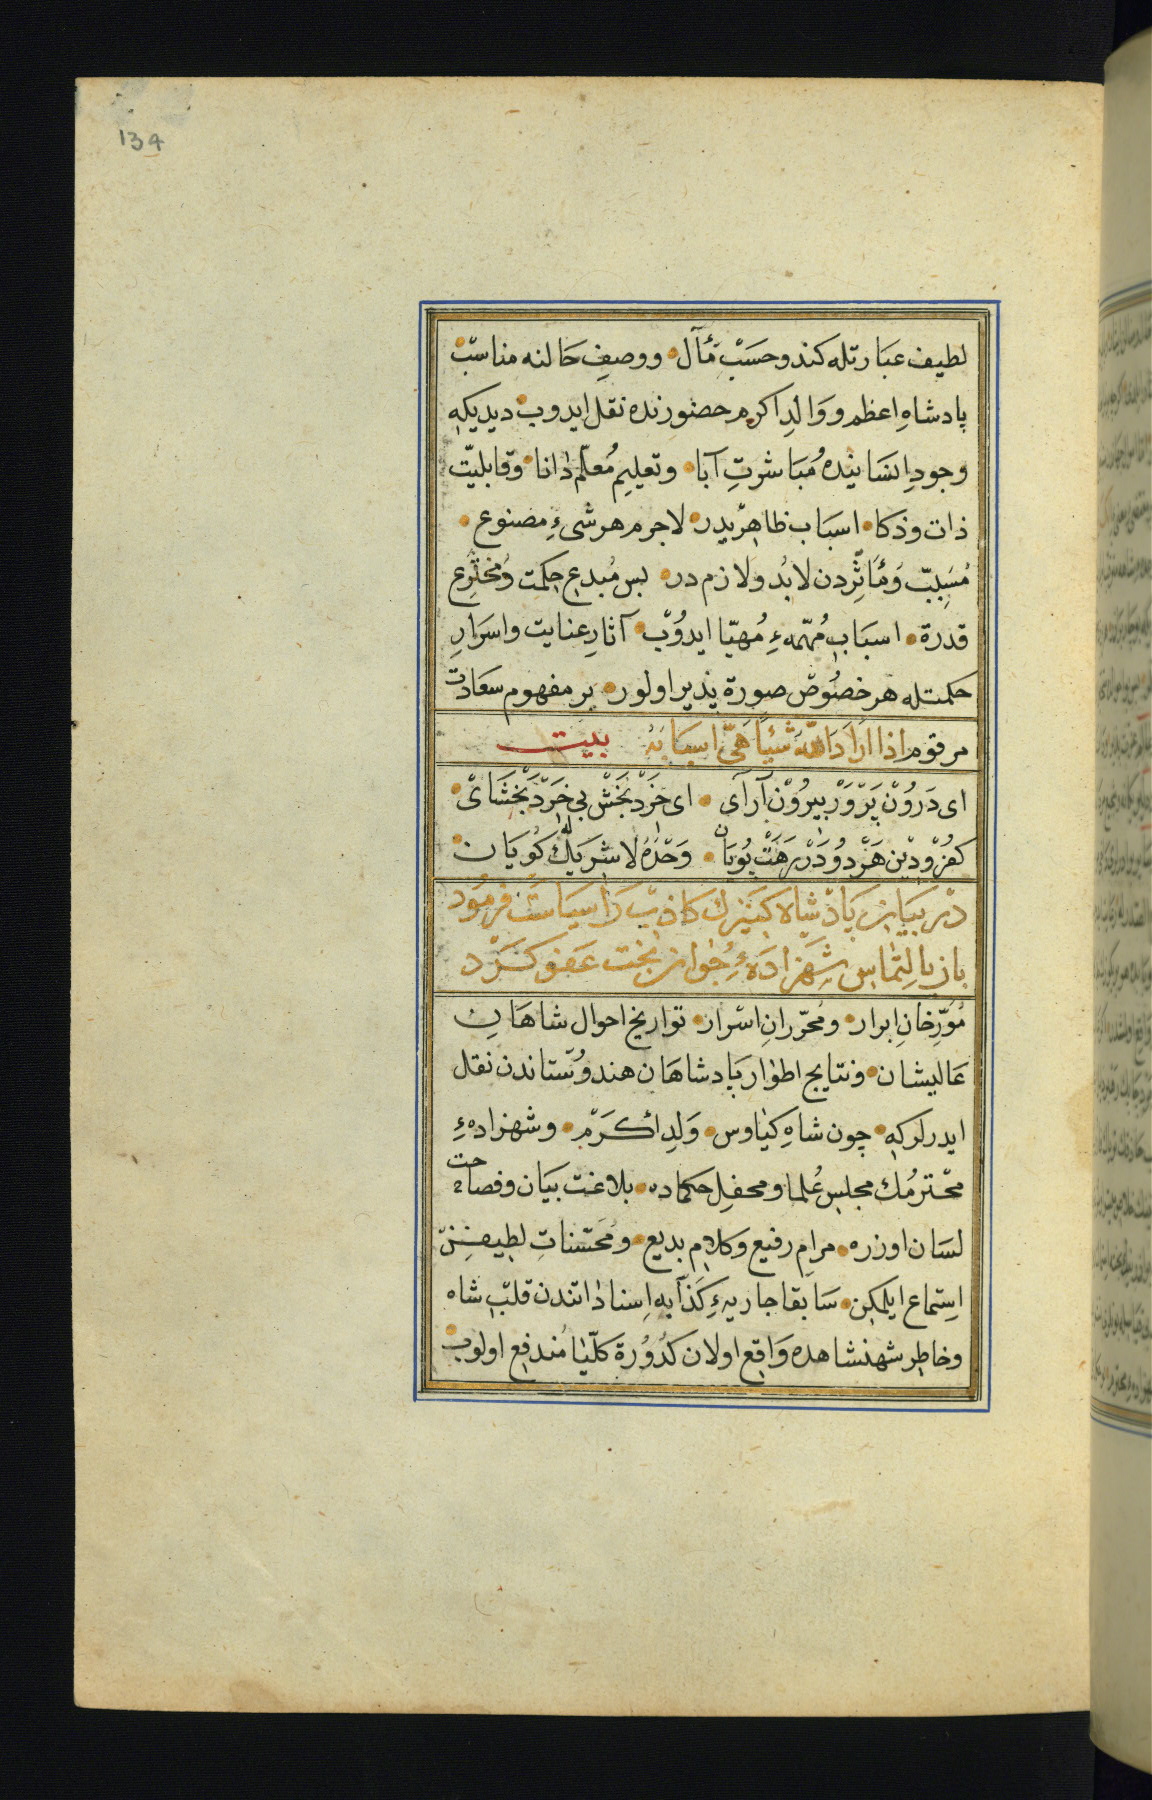 134
لطیف عبارتله کندو حسبِ مأٓل ووصفِ حالنه مناسبْ
پادشاهِ اعظم ووالدِ اکرم حضورنده نقل ایدوب دیدیکه
وجودِ انسانیده مُباشرتِ آبا وتعلیمِ مُعلّم دانا وقابلیّت
ذات وذکا اسباب ظاهرّیدر لاجرم هر شیءِ مصنوع
مُسَبِبّ وَمُأثِّردن لابُد ولازم در پس مُبدعِ حِکمت وَمُخترِعِ
قدرة اسبابِ مُهمّهءِ مُهیّا ایدُوبْ آثارِ عنایت واسرارِ
حکمتله هر خصُوصْ صورة پذیر اولور بر مفهوم سعادت
مرقوم اذا اَرَادَ اللهُ شَیْئًا هَیَّ اسبَابَهُ بیت
ای دَرُوْن پَرْوَرْ بیرُوْن آرآی ای خِرَدْ بَخْش بی خِرَدْ بَخْشَایْ
کفرْ ودیْن هَرْدو دَرْ رَهَتْ پُویَان وَحْدَهُ لا شَرِیکَ لَه کُویَان
در بیان پادشاه کنیزك کاذب را سیاست فرمود
باز بالتماس شهزادهءِ جوان بخت عفو کرد
مُورّخانِ ابرار ومُحرّرانِ اسْرار تواریخ احوال شاهانِ
عَالیشان ونتایج اطوار پادشاهان هندوُستاندن نقل
ایدرلرکه چون شاهِ کیٰاوس وَلدِ اکْرَمْ وشهزادهءِ
محْترمُك مجلسِ عُلما ومحفلِ حکماده بلاغت بیَان وفصاحت
لسَان اوزره مرامِ رفیع وکلامِ بدیع ومُحسّناتِ لطیفنِنْ
اِستماع ایلمکِن سَابقا جاریهءِ کَذّابه اِسناد اتندن قلبِ شاه
وخاطرِ شهنشاهده وَاقع اولان کدُوُرة کلّیٰا مُندفِع اولوب